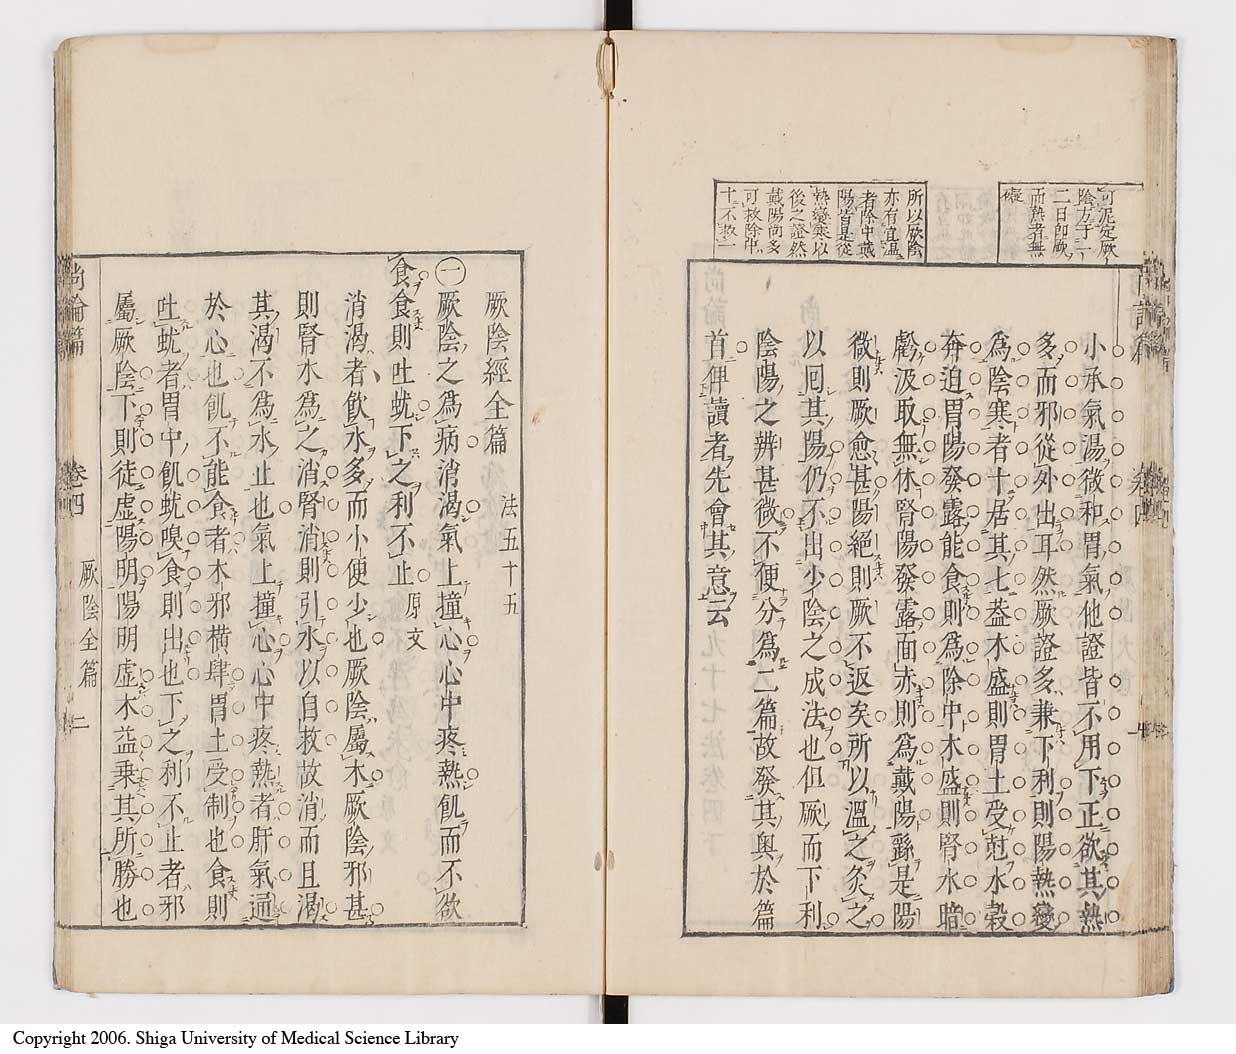 可泥定厥
陰方于一
二日卽厥
而熱者無
礙
所以厥陰
亦有宜溫
者除中戴
陽皆是從
熱變寒以
後之證然
戴陽尚多
可救除中
十不救一
小承氣湯微和胃氣他證皆不用下正欲其熱
多而邪從外出耳然厥證多兼下利則陽熱變
爲陰寒者十居其七盖木盛則胃土受尅水穀
奔迫胃陽發露能食則爲除中木盛則腎水暗
虧汲取無休腎陽發露面赤則爲戴陽繇是陽
微則厥愈甚陽絕則厥不返矣所以溫之灸之
以囘其陽仍不出少陰之成法也但厥而下利
陰陽之辨甚微不便分爲二篇故發其奧於篇
首俾讀者先會其意云
厥陰經全篇 法五十五
㊀厥陰之爲病消渴氣上撞心心中疼熱飢而不欲
食食則吐蚘下之利不止 原文
消渴者飲水多而小便少也厥陰屬木厥陰邪甚
則腎水爲之消腎消則引水以自救故消而且渴
其渴不爲水止也氣上撞心心中疼熱者肝氣通
於心也飢不能食者木邪橫肆胃土受制也食則
吐蚘者胃中飢蚘嗅食則出也下之利不止者邪
屬厥陰下則徒虛陽明陽明虛木益乘其所勝也
尚論篇 卷四 厥陰全篇 二
Copyright 2006. Shiga University of Medical Science Library